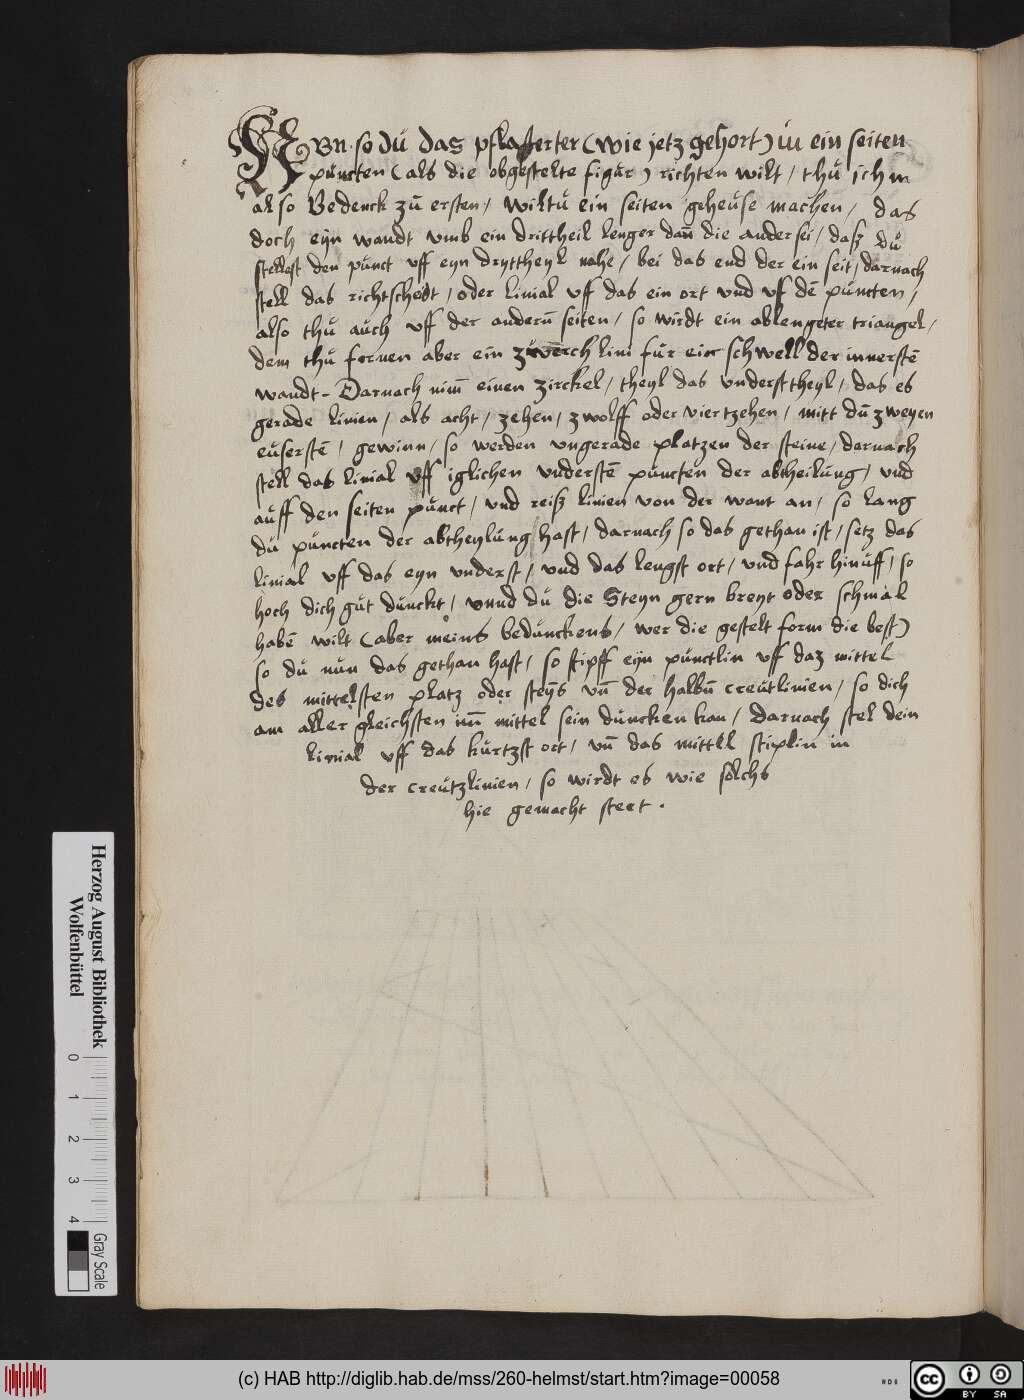 NVn so du das pflasterter (wie jetz gehort) in ein seiten
puncten (als die obgestelte figur) richten wilt / thu ihm
also Bedenck zu ersten / wiltu ein seiten geheuse machen / das
doch eyn wandt vmb ein drittheil lenger dañ die ander sei / dasz du
stellest den punct vff eyn dryttheyl nahe / bei das end der ein seit / darnach
stell das richtscheidt / oder linial vff das ein ort vnd vf dē puncten /
also thu auch vff der anderñ seiten / so wirdt ein ablengeter triangel /
dem thu fornen aber ein zwerch lini fur ein schwell der innerstē
wandt - Darnach nim̄ einen zirckel / theyl das vnderst theyl / das es
gerade linien / als acht / zehen / zwolff oder viertzehen / mitt dñ zweyen
euserstē / gewinn / so werden vngerade platzen der steine / darnach
stell das linial vff iglichen vnderstē puncten der abtheilung / vnd
auff den seiten punct / vnd reisz linien von der want an / so lang
du puncten der abtheylung hast / darnach so das gethan ist / setz das
linial vff das eyn vnderst / vnd das lengst ort / vnd fahr hinuff / so
hoch dich gut dunckt / vnnd du die Steyn gern breyt oder schmal
habē wilt (aber meins beduenckens / wer die gestelt form die best)
so du nun das gethan hast / so stipff eyn punctlin vff daz mittel
des mittelsten platz oder steÿs vñ der halbñ creutlinien / so dich
am aller gleichsten im̄ mittel sein duncken kan / Darnach stel dein
linial vff das kurtzst ort / vñ das mittel stiplin in
der creutzlinien / so wirdt es wie solchs
hie gemacht steet .
Herzog August Bibliothek
Wolfenbüttel
0 1 2 3 4
Gray Scale
(c) HAB http://diglib.hab.de/mss/260-helmst/start.htm?image=00058
HAB
cc BY SA